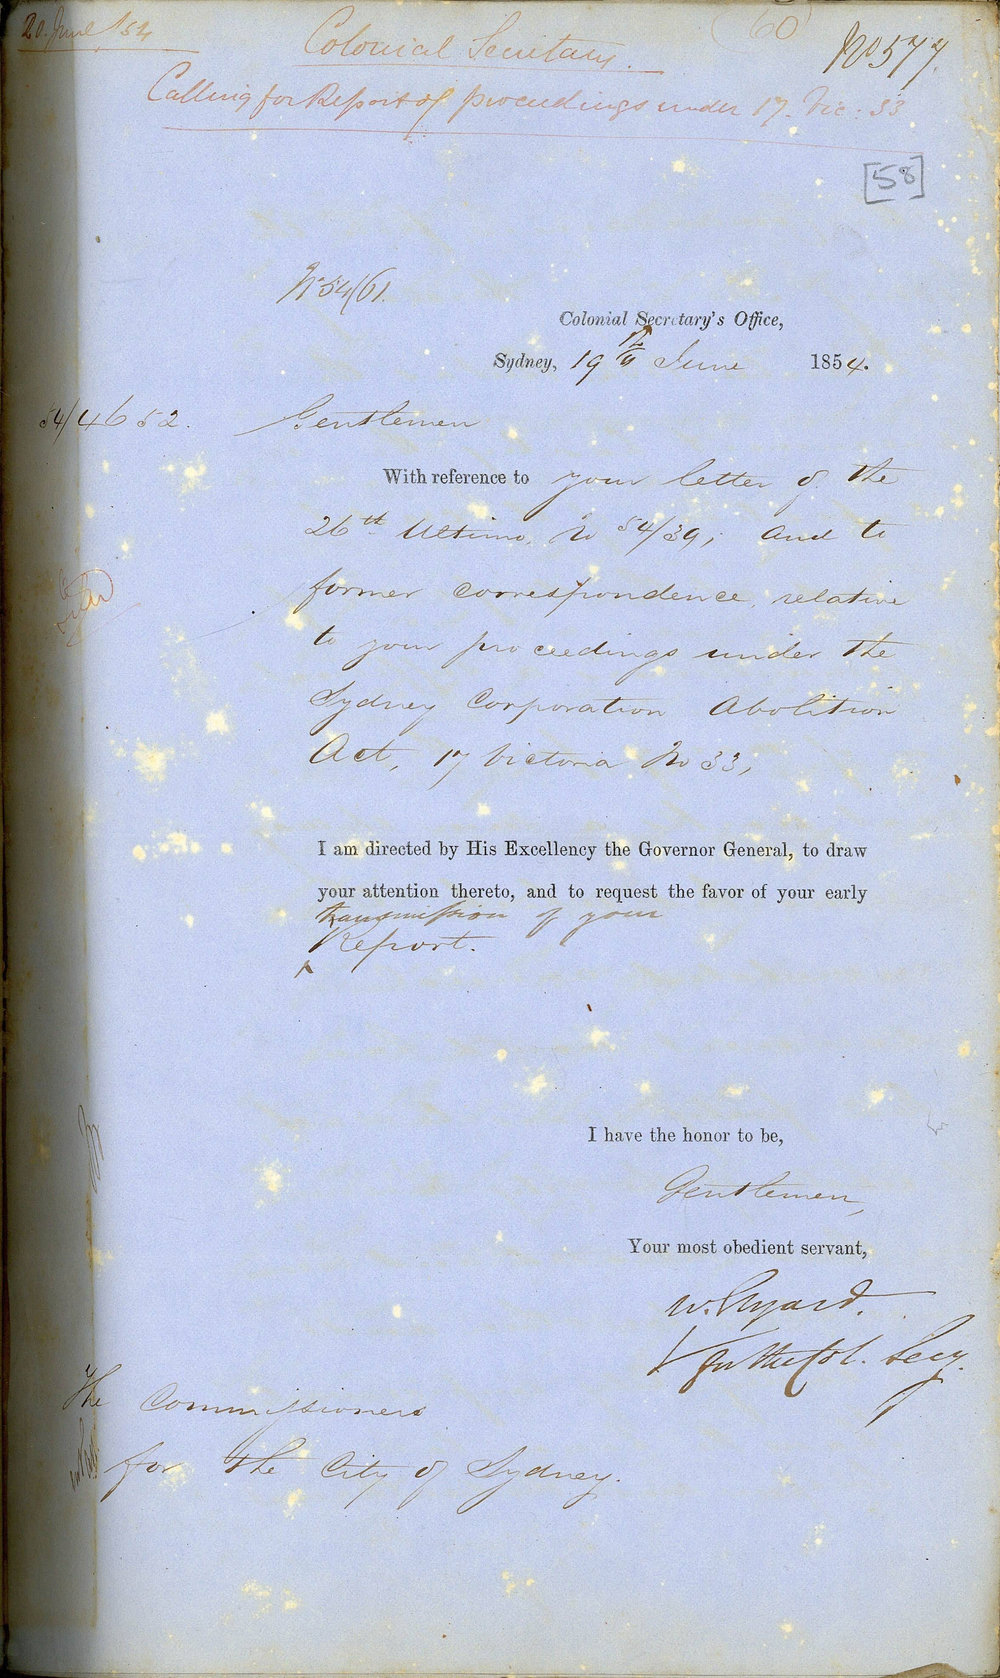 20. June / 54
(60)
No 577.
Colonial Secretary.
Calling for Report of proceedings under 17. Vic: 33
[58]
No 54/61.
Colonial Secretary's Office,
Sydney, 19th June 1854.
54/4652.
Gentlemen
With reference to your letter of the
26th Ultimo, No 54/39; and to
former correspondence, relative
to your proceedings under the
Sydney Corporation Abolition
Act, 17 Victoria No 33,
I am directed by His Excellency the Governor General, to draw
your attention thereto, and to request the favor of your early
transmission of your
Report.
I have the honor to be,
Gentlemen,
Your most obedient servant,
W. Elyard.
for the Col. Secy.
The Commissioners
for the City of Sydney.